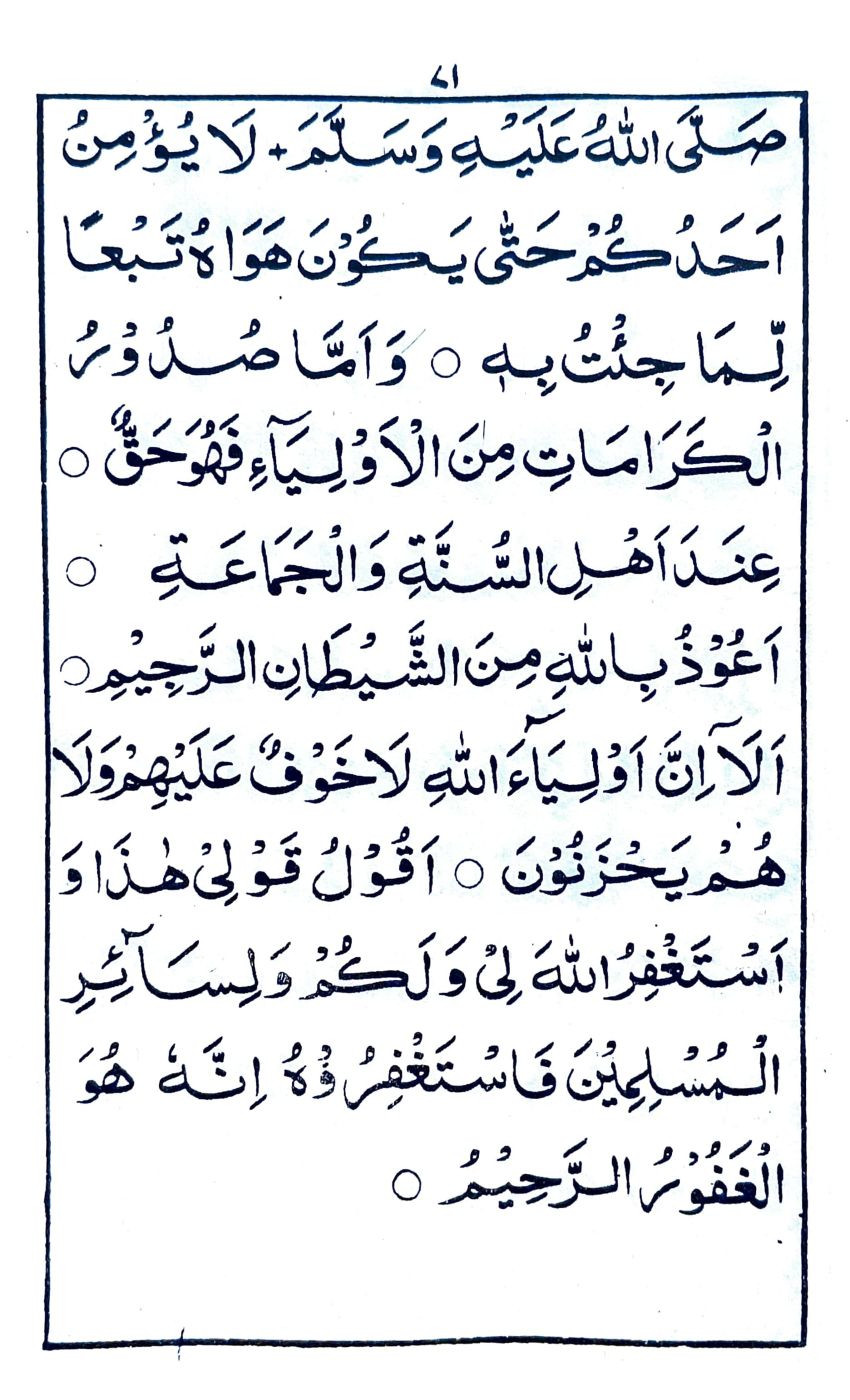 ۷۱
صَلَّى اللّٰهُ عَلَيْهِ وَسَلَّمَ + لَا يُؤْمِنُ
اَحَدُكُمْ حَتّٰى يَكُوْنَ هَوَاهُ تَبْعًا
لِّمَا جِئْتُ بِهٖ ○ وَاَمَّا صُدُوْرُ
الْكَرَامَاتِ مِنَ الْاَوْلِيَآءِ فَهُوَ حَقٌّ ○
عِنَدَ اَهْلِ السُّنَّةِ وَالْجَمَاعَةِ ○
اَعُوْذُ بِاللّٰهِ مِنَ الشَّيْطَانِ الرَّجِيْمِ ○
اَلَآ اِنَّ اَوْلِيَآءَ اللّٰهِ لَا خَوْفٌ عَلَيْهِمْ وَلَا
هُمْ يَحْزَنُوْنَ ○ اَقُوْلُ قَوْلِىْ هٰذَا وَ
اَسْتَغْفِرُ اللّٰهَ لِىْ وَلَكُمْ وَلِسَآئِرِ
الْمُسْلِمِيْنَ فَاسْتَغْفِرُوْهُ اِنَّهٗ هُوَ
الْغَفُوْرُ الرَّحِيْمُ ○